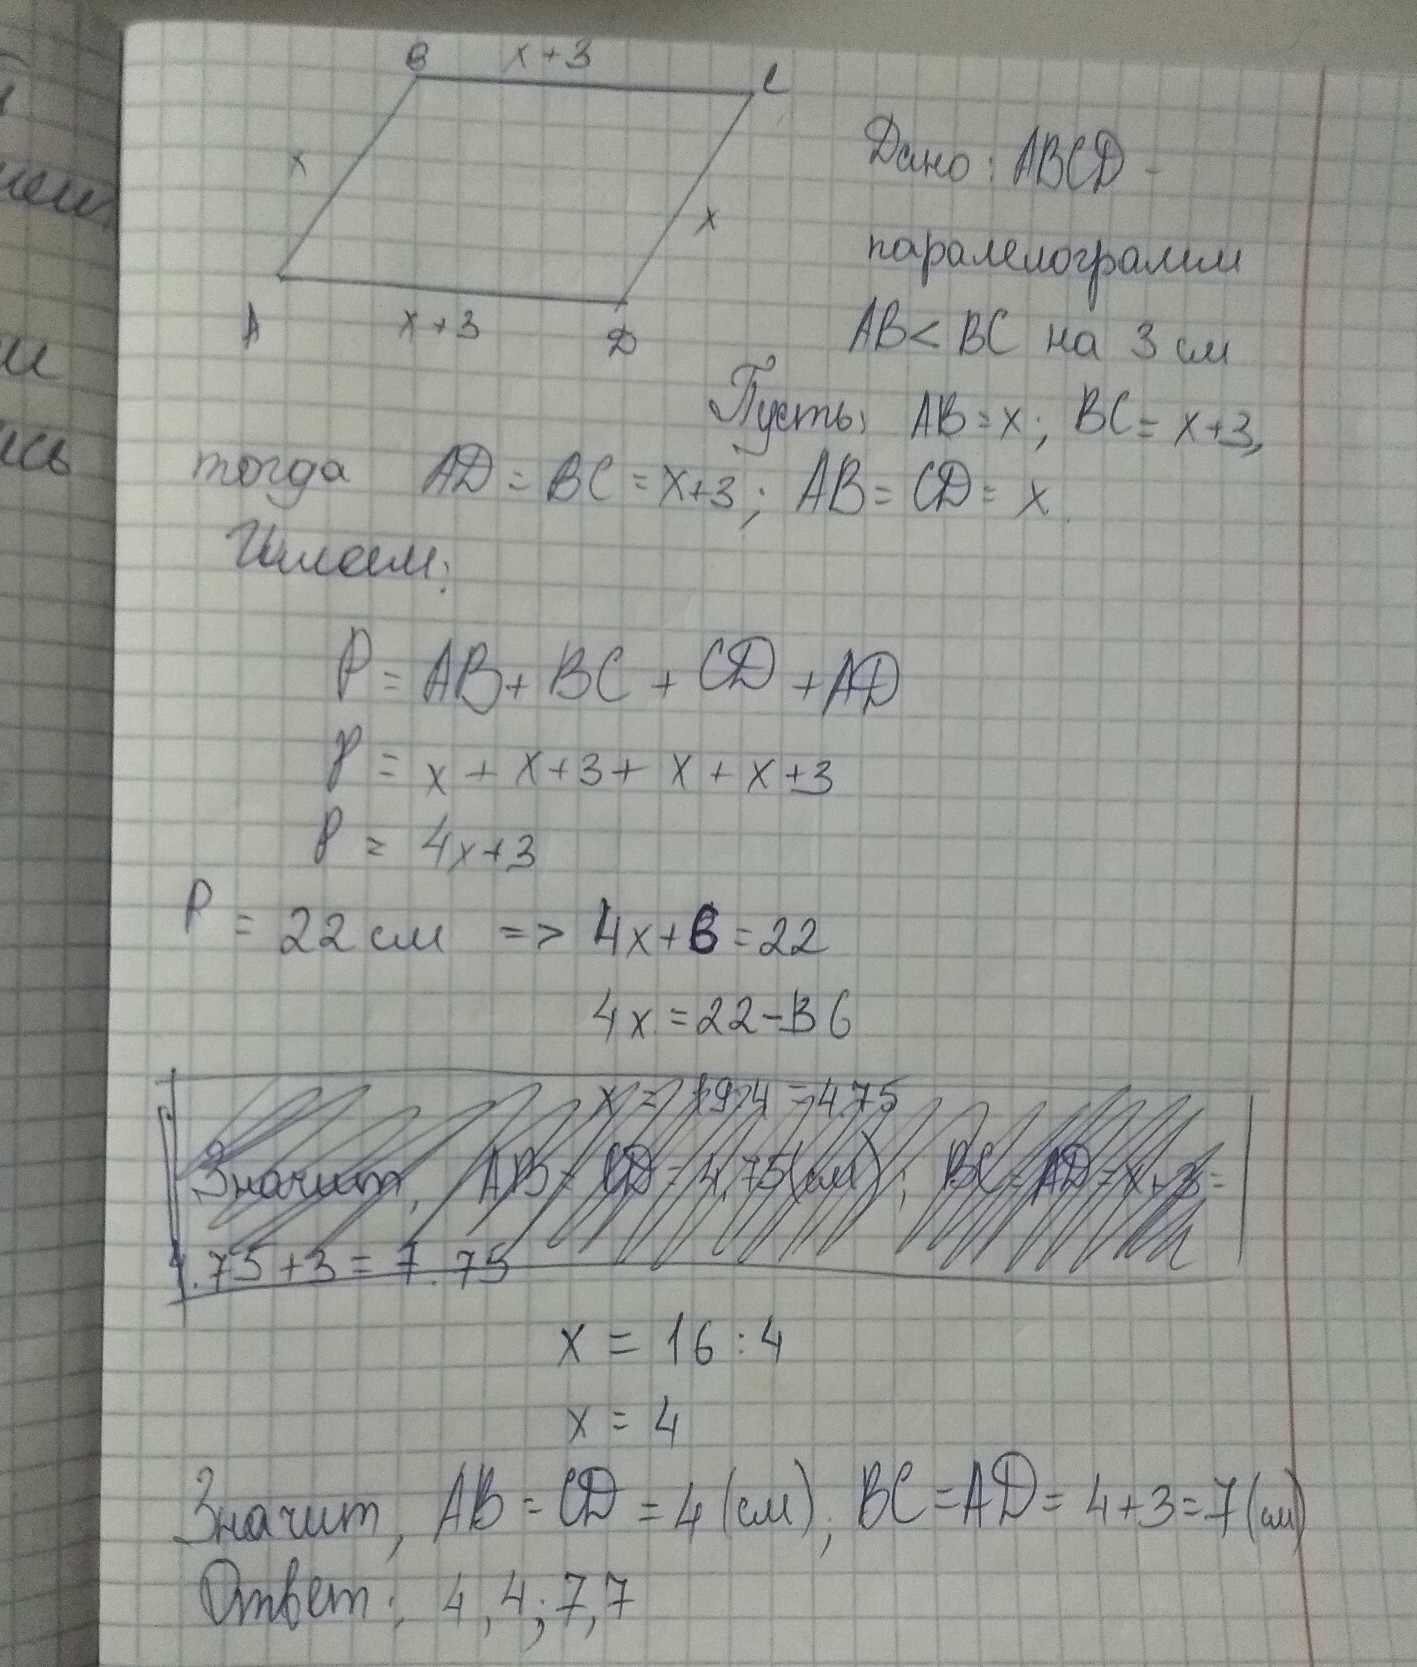 B x+3 C
x
x
A x+3 D
Дано: ABCD -
паралелограмм
AB < BC на 3 см
Пусть: AB = x; BC = x+3,
тогда AD = BC = x+3; AB = CD = x.
Имеем:
P = AB + BC + CD + AD
P = x + x+3 + x + x+3
P = 4x+3
P = 22 см => 4x+6 = 22
4x = 22-6
x = 19:4 = 4.75
Значит, AB = CD = 4,75 (см); BC = AD = x+3 =
4.75+3 = 7.75
x = 16 : 4
x = 4
Значит, AB = CD = 4 (см); BC = AD = 4+3 = 7 (см)
Ответ: 4, 4; 7, 7